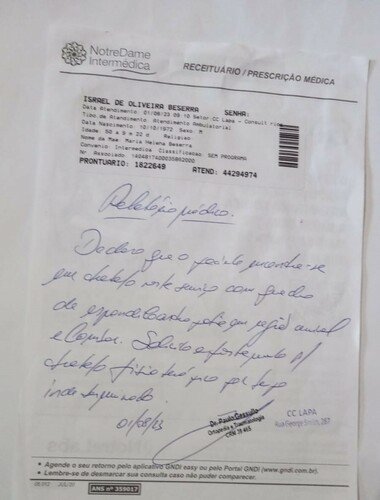 NotreDame
Intermédica
RECEITUÁRIO / PRESCRIÇÃO MÉDICA
ISRAEL DE OLIVEIRA BESERRA SENHA:
Data Atendimento: 01/08/23 09:10 Setor: CC Lapa - Consultório
Tipo de Atendimento: Atendimento Ambulatorial
Data Nascimento: 10/10/1972 Sexo: M
Idade: 50 a 9 m 22 d Religião:
Nome da Mae: Maria Helena Beserra
Convenio: Intermedica Classificacao: SEM PROGRAMA
Nr Associado:
PRONTUÁRIO: 1822649 ATEND: 44294974
Relatório médico.
Declaro que o paciente encontra-se
em tratato neste serviço com quadro
de espondilodiscopatia em região cervical
e lombar. Solicito afastamento p/
tratato fisioterápico por tempo
indeterminado.
01/08/23
Dr. Paulo Gassullo
Ortopedia e Traumatologia
CC LAPA
Rua George Smith, 287
• Agende o seu retorno pelo aplicativo GNDI easy ou pelo Portal GNDI (www.gndi.com.br).
• Lembre-se de desmarcar sua consulta caso não puder comparecer.
ANS nº 359017